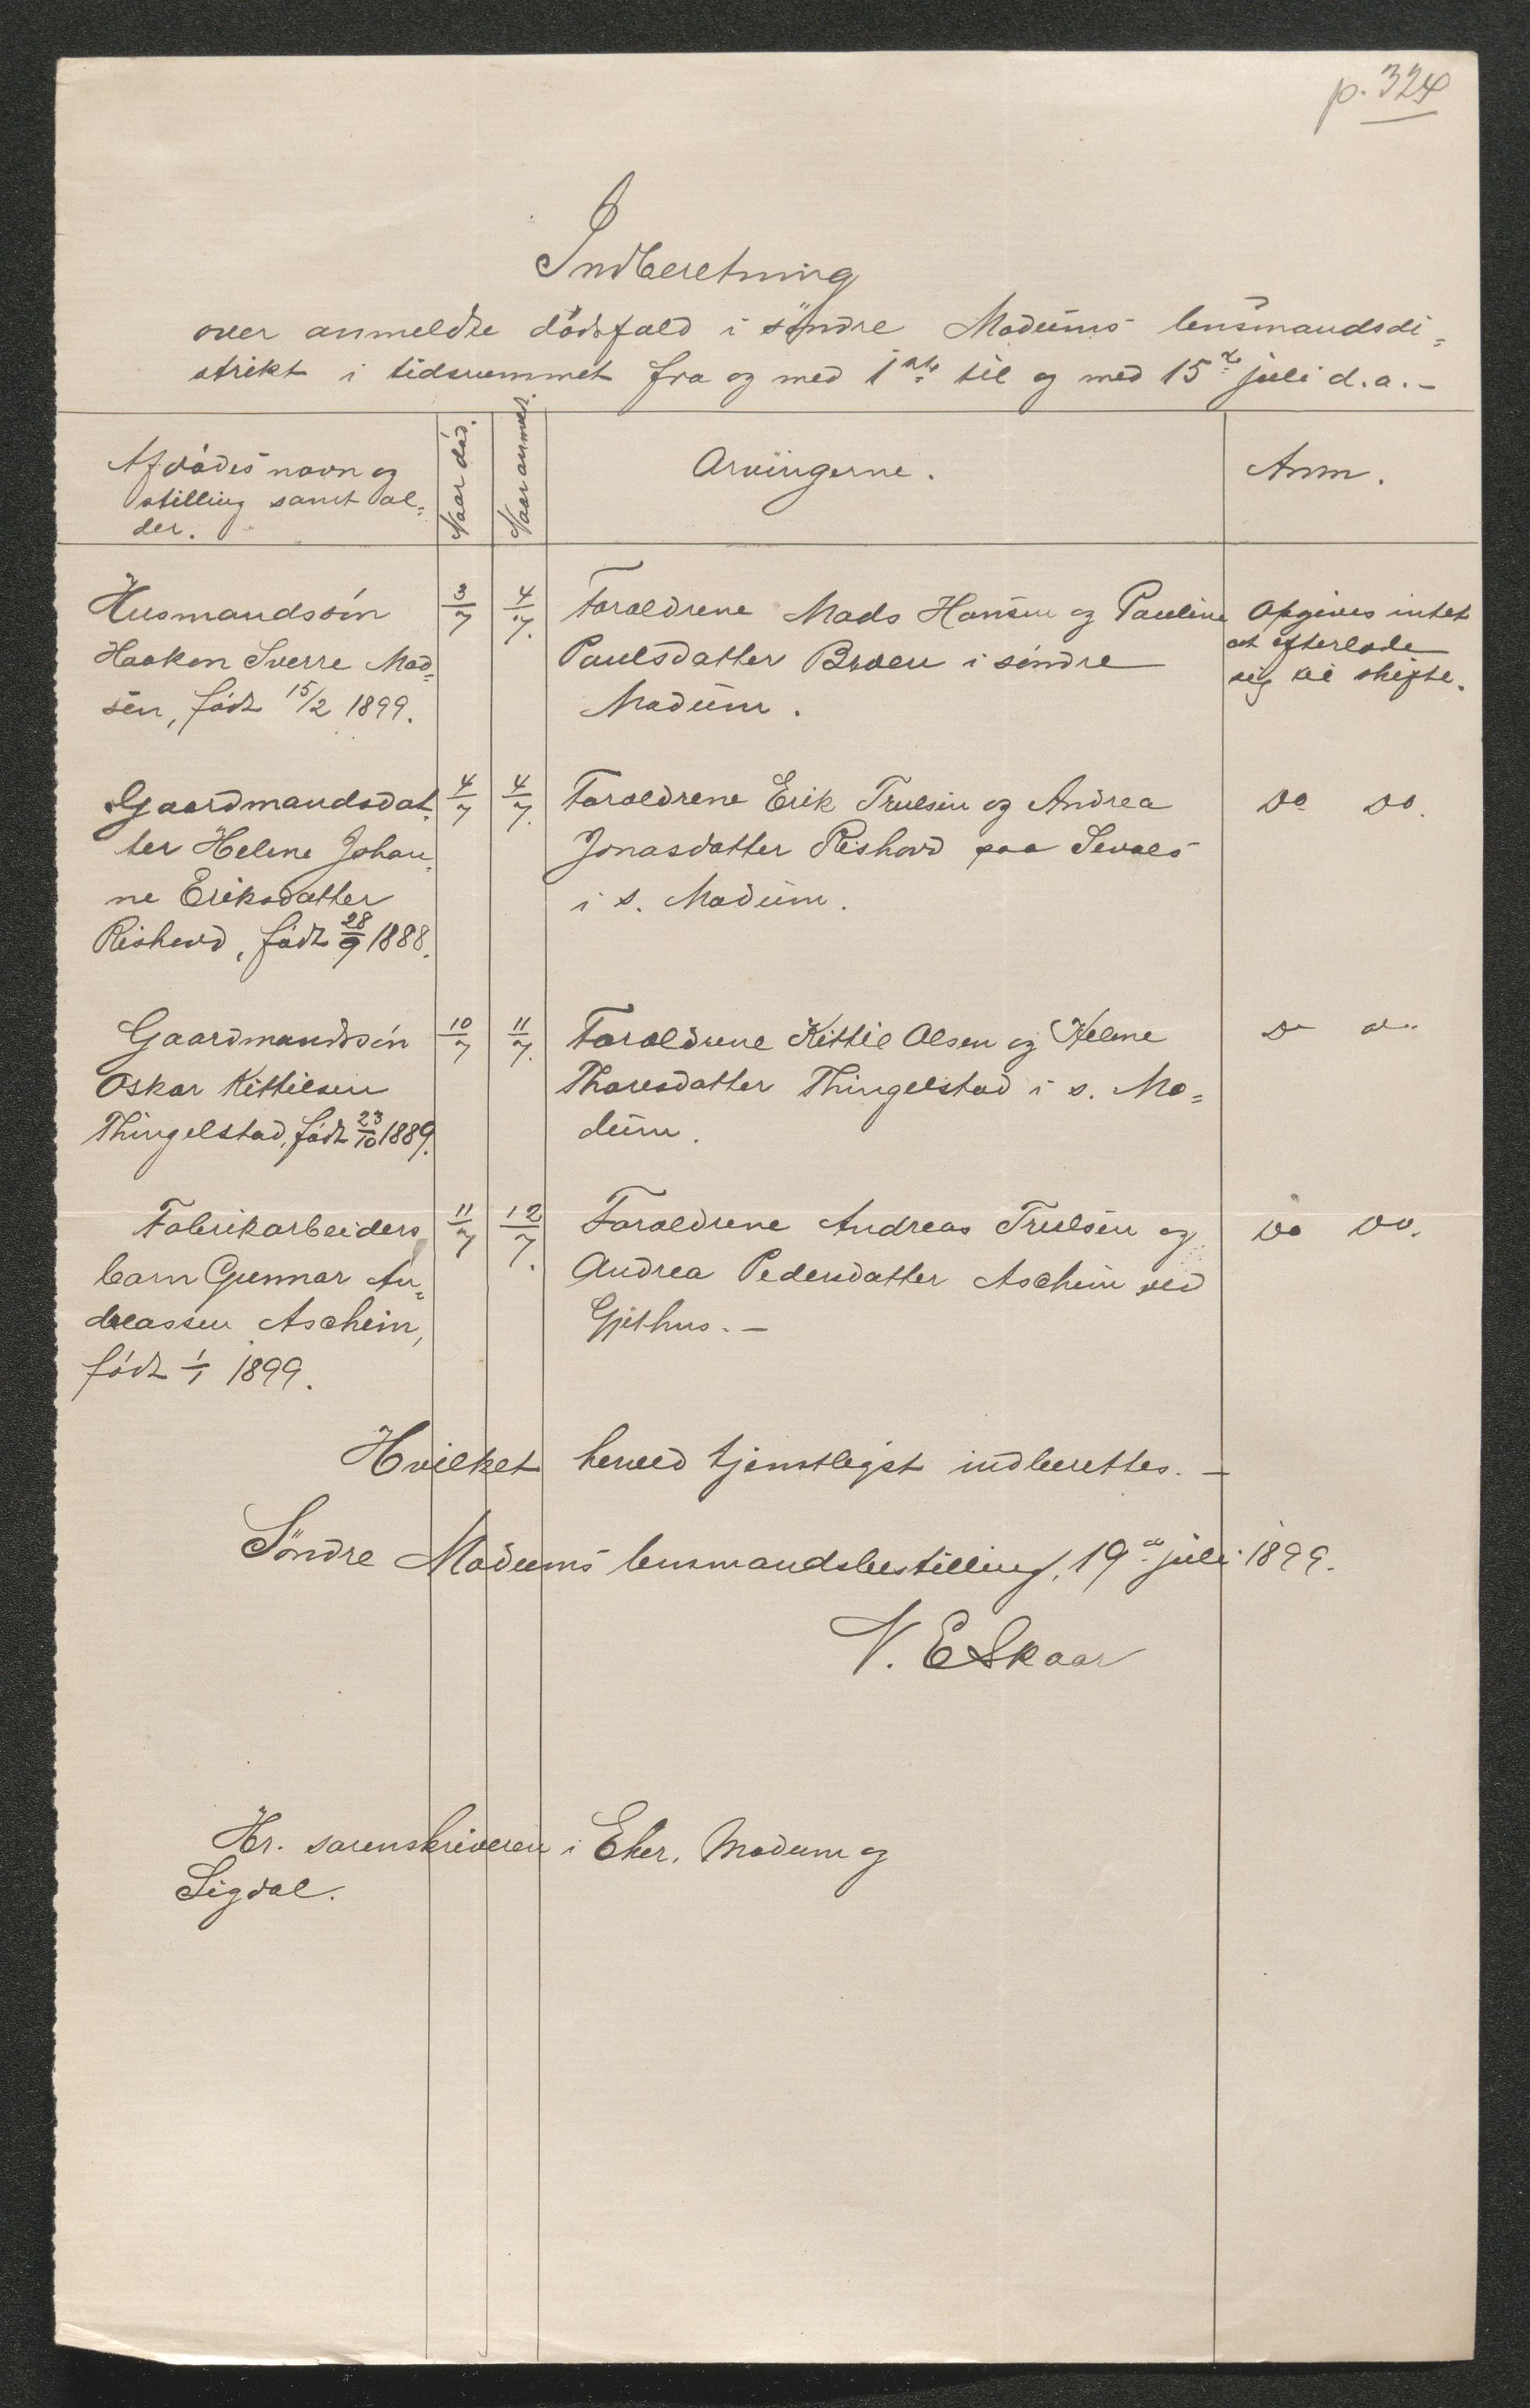 p. 324
Indberetning
over anmeldte dödsfald i söndre Modums lensmandsdi=
strikt i tidsrummet fra og med 1ste til og med 15de juli d.a. –
Afdödes navn og
stilling samt al=
der.
Naar död.
Naar anmeldt.
Arvingerne.
Anm.
Husmandssön
Haakon Sverre Mad=
sen, födt 15/2 1899.
3/7
4/7.
Foraldrene Mads Hansen og Pauline
Paulsdatter Braaten i söndre
Modum.
Opgives intet
at efterlade
sig til skifte.
Gaardmandsdat=
ter Helene Johan=
ne Eriksdatter
Rishovd, födt 28/9 1888.
4/7
4/7.
Foraldrene Erik Trulsen og Andrea
Jonasdatter Rishovd paa
i s. Modum.
Do Do.
Gaardmandssön
Oskar Kittilsen
Thingelstad, födt 23/10 1889.
10/7
11/7.
Foraldrene Kittil Olsen og Helene
Tharesdatter Thingelstad i s. Mo=
dum.
Do Do.
Fabrikarbeiders
barn Gunnar An=
dreassen Aschim,
födt 1/1 1899.
11/7
12/7.
Foraldrene Andreas Trulsen og
Andrea Pedersdatter Aschim ved
Gjethus. –
Do Do.
Hvilket herved tjenstligst indberettes. –
Söndre Modums lensmandsbestilling, 19de juli 1899.
N. E Skaar
Hr. sorenskriveren i Eker, Modum og
Sigdal.